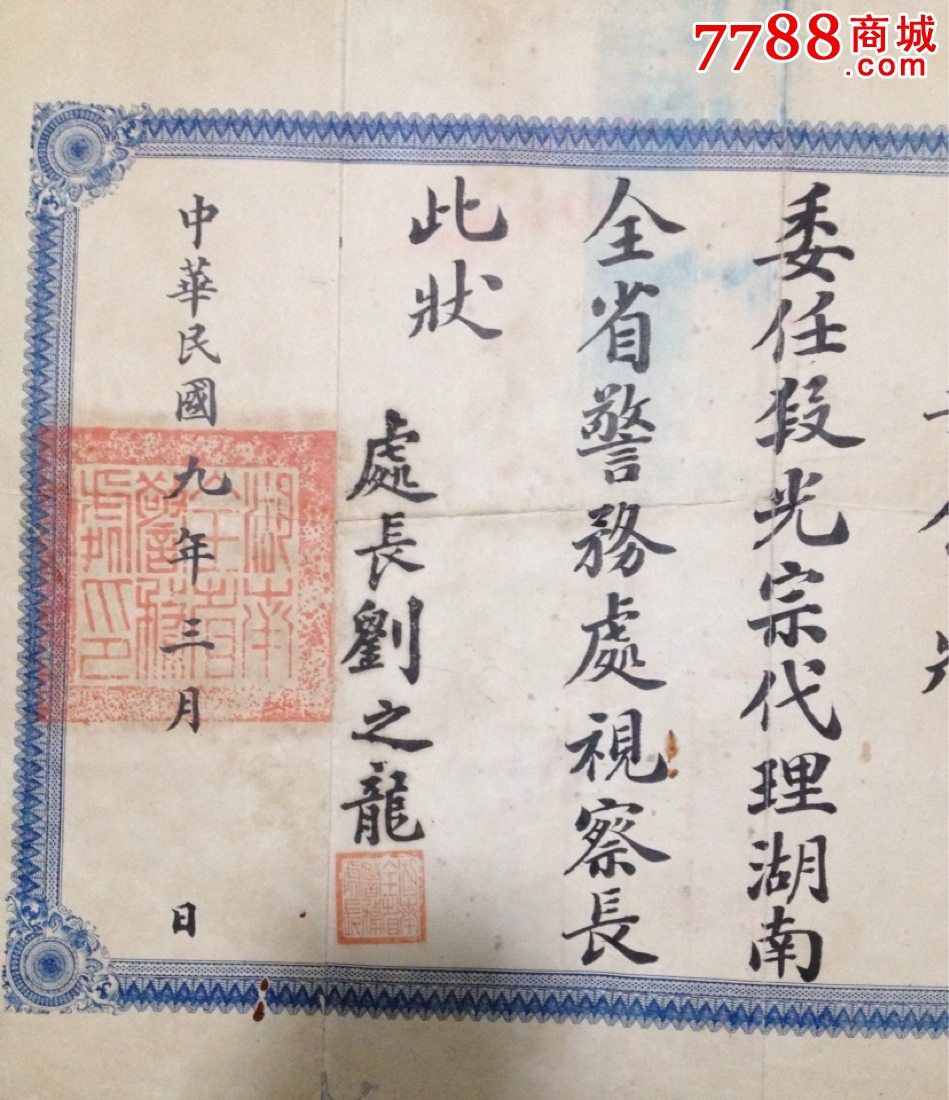 7788商城
.com
委任段光宗代理湖南
全省警務處視察長
此狀
處長劉之龍
湖南
全省
警務
處長
中華民國九年三月 日
湖南
全省
警務
處印